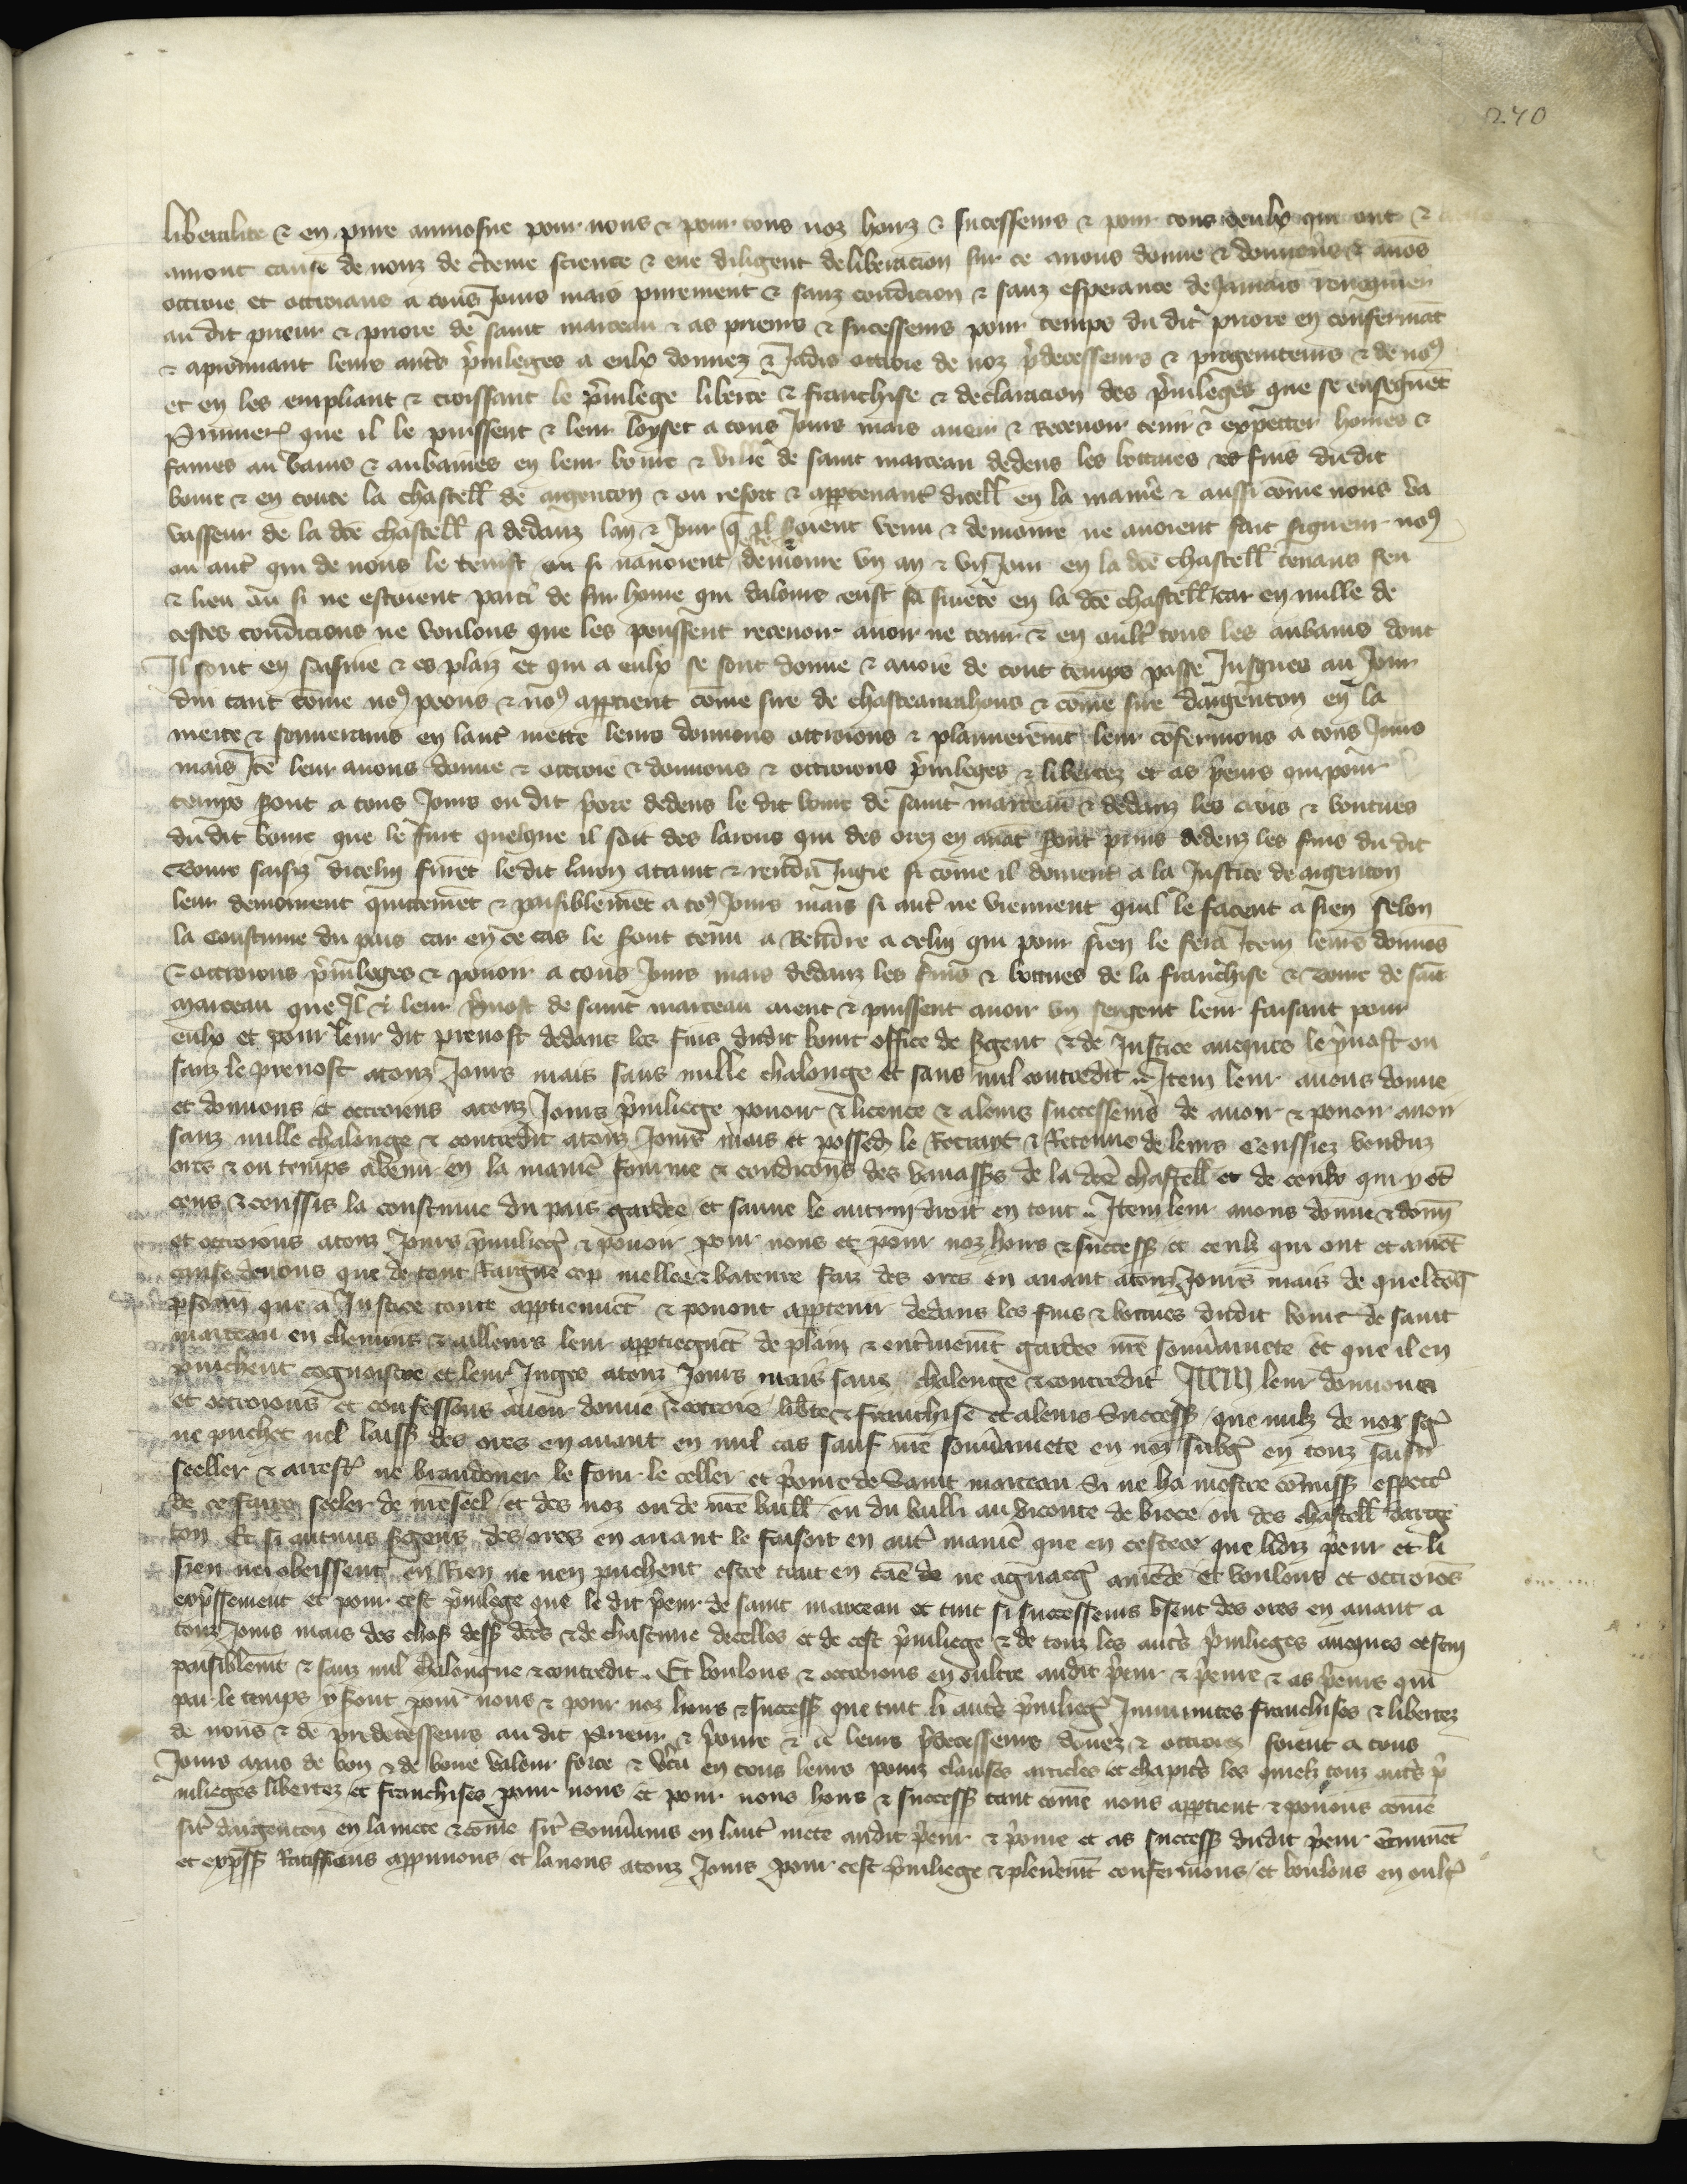 240
liberalite & en pure aumosne pour nous & pour tous noz hoirs & sucesseurs & pour tous ceulx qui ont &
auront cause de nouz de cteine science & eue diligent deliberacion sur ce auons donne & donnons & auos
ottroie et ottroians a tous Jours mais purement & sanz condicion & sanz esperance de Jamais
au dit prieur & priore de saint marceau & as prieurs & sucesseurs pour temps du dit priore en confermat
& aprouuant leurs autres pruileges a eulx donnez & Jadis ottroie de noz pdecesseurs & progeniteurs & de no9
et en les empliant & croissant le priuilege liberte & franchise & declaracion des priuileges que se enseguet
Primier que il le puissent & leur loyset a tous Jours mais auoir & Receuoir tenir & expetter homes &
fames au bains & aubaines en leur bourc & ville de saint marceau dedens les bottues es fins dudit
bourc & en toute la chastell de argenton & ou resort & appartenant dicell en la manie & aussi come nous va
vasseur de la dce chastell si dedanz lan & Jour q il soient venu & demoure ne auoient fait signeur no9
este
ou autre qui de nous le tenist ou si nauoient demoure vn an & vn Jour en la dce chastell tenans feu
& lieu au si ne estoient parti de sur home qui dalours eust sa suiete en la dce chastell car en nulle de
cestes condicions ne voulons que les peussent receuoir auoir ne tenir & en oultre tous les aubains dont
Il sont en saisine & es plaiz et qui a eulx se sont donne & auoie de tout temps passe Jusques au Jour
dui tant come no9 peons & no9 appartient come sire de chasteaurahous & come sire dargenton en la
meite & souuerains en lautre meitte leurs donnons ottroions & plannerement leur cofermons a tous Jours
mais Ite leur auons donne & ottroie & donnons & ottroions pruileges & libertez et as preurs qui pour
temps sont a tous Jours ou dit priore dedens le dit bourc de saint marceau & dedanz les crois & bontues
dudit bourc que le fuit quelque il soit des larrons qui des orez en auat sont prins dedenz les fins du dit
bourc saisiz dicelui furet ledit laron ataint & rendu Jugie si come il doiuent a la Justice de argenton
leur demourent quittemet & paisiblemet a to9 Jours mais si autre ne viennent quil le facent a sien selon
la coustume du pais car en ce cas le sont tenu a Rendre a celui qui pour sien le sera Item leurs donnos
& ottroions pruileges & pouoir a tous Jours mais dedanz les fins & bottues de la franchise & bourc de sait
marceau que Il & leur pruost de saint marceau aient & puissent auoir vn sergent leur faisant pour
eulx et pour leur dit preuost dedans les fins dudit bourc office de sgent & de Justice auequs le pruost ou
sanz le preuost atouz Jours mais sans nulle chalonge et sans nul contredit Item leur auons donne
et donnons et ottroions atouz Jours pruiliege pouoir & licence & aleurs successeurs de auoir & pouoir auoir
sanz nulle chalonge & contredit atouz Jours mais et posseder le Retrayt & Retenue de leurs Censsiez venduz
ores & ou temps abenir en la manie fourme & condicons des vauass9 de la dce chastell et de ceulx qui y ot
cens & censsis la coustume du pais gardee et sauue le autrui droit en tout Item leur auons donne & donn
et ottroions atouz Jours pruiliege & pouoir pour nous et pour noz hoirs & success et ceulz qui ont et auret
cause denous que de tout sang cop mellee & bature faiz des ores en auant atouz Jours mais de quelcoq
psoun que a Justice toute appartiennet & pouont appartenir dedans les fins & bottues dudit bourc de saint
marceau en chemins & ailleurs leur appartiegnet de plain & entierement gardee nre souuerainete et que il en
puichent cognoistre et leur Juges atouz Jours mais sanz chalonge & contredit ITEM leur donnons
et ottroions et confessons auoir donne & ottroie liberte & franchise et aleurs success que nulz de noz sgns
ne puichet nil laiss des ores en auant en nul cas sauf nre souuerainete en noz subgs en touz saisir
seeller & arrest ne brandoner le four le celler et prioure de Saint marceau Si ne ha nostre comiss especl
de ce faire seeler de nre seel et des noz ou de nre baill ou du bailli au viconte de broce ou des chastell darge
ton Et si aucuns sgens des ores en auant le faisoit en autre manie que en cestece que ledit prieur et li
sien nei obeissent en Rien ne nen puichent estre trait en cause de ne agnaces amede et voulons et ottroios
expressement et pour cest pruilege que le dit preur de saint marceau et tuit si successeurs vsent des ores en auant a
touz Jours mais des choses dess dces & de chascune decelles et de cest pruiliege & de touz les autres pruilieges auequs cestui
paisiblemt & sanz nul chalongne & contredit Et voulons & ottroions en oultre audit preur & prioure & as preurs qui
par le temps y sont pour nous & pour noz hoirs & success que tuit li autre pruilieg Immunites franchises & libertez
de nous & de predecesseurs au dit prieur & prioure & a leurs predecesseurs donez & ottroiez soient a tous
Jours mais de bon & de bone valour force & vertu en tous leurs poinz clauses articles et chapitres les quelz touz autres pr
uilieges libertez et franchises pour nous et pour nous hoirs & success tant come nous appartient & pouons come
sire dargenton en la meite & come sire souuerains en lautre meite audit preur & prioure et as success dudit preur
et express Ratiffions approuuons et lauons atouz Jours pour cest pruiliege & plenement confermons et voulons en oultre